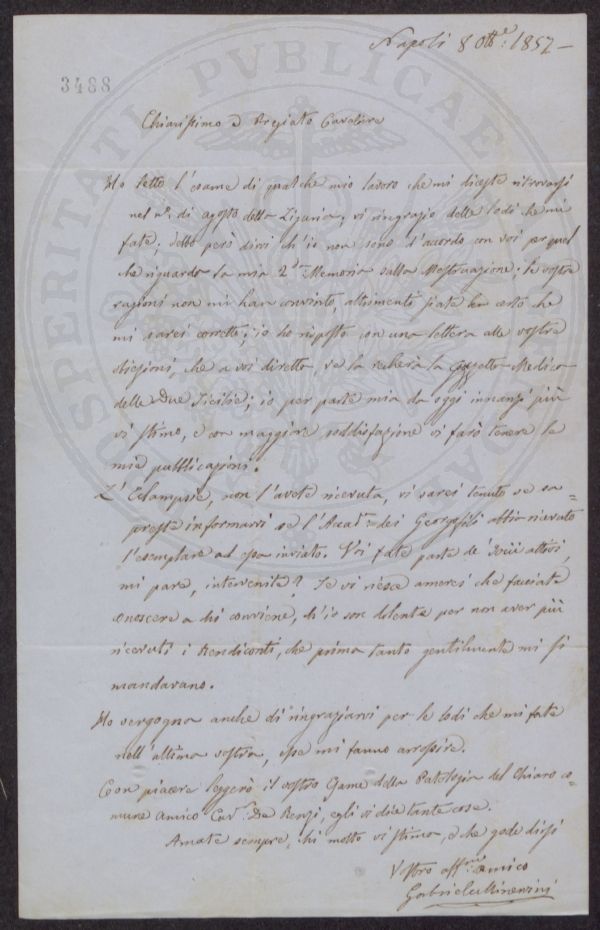 Napoli 8 Ottbre: 1857 –
3488
Chiarissimo e Pregiato Cavaliere
Ho letto l'esame di qualche mio lavoro che mi diceste ritrovarsi
nel n° di agosto della Liguria; vi ringrazio delle lodi che mi
fate; debbo però dirvi ch'io non sono d'accordo con voi per quel
che riguarda la mia 2a Memoria sulla Mestruazione; le vostre
ragioni non mi han convinto, altrimenti siate ben certo che
mi sarei corretto; io ho risposto con una lettera alle vostre
obiezioni, che a voi diretta, ve la recherà la Gazzetta Medica
delle Due Sicilie; io per parte mia da oggi innanzi più
vi stimo, e con maggiore soddisfazione vi farò tenere le
mie pubblicazioni.
L'Eclampsie, non l'avete ricevuta, vi sarei tenuto se sa=
peste informarvi se l'Accad.a dei Georgofili abbia ricevuto
l'esemplare ad essa inviato. Voi fate parte de' Socii attivi,
mi pare, intervenite? Se vi riesce amerei che facciate
conoscere a chi conviene, ch'io son dolente per non aver più
ricevuti i Rendiconti, che prima tanto gentilmente mi si
mandavano.
Ho vergogna anche di ringraziarvi per le lodi che mi fate
nell'ultima vostra, esse mi fanno arrossire.
Con piacere leggerò il vostro Esame della Patologia del chiaro co=
mune amico Cav. De Renzi, egli vi dice tante cose.
Amate sempre, chi molto vi stima, e che gode dirsi
Vostro aff.mo amico
Gabriele Minervini